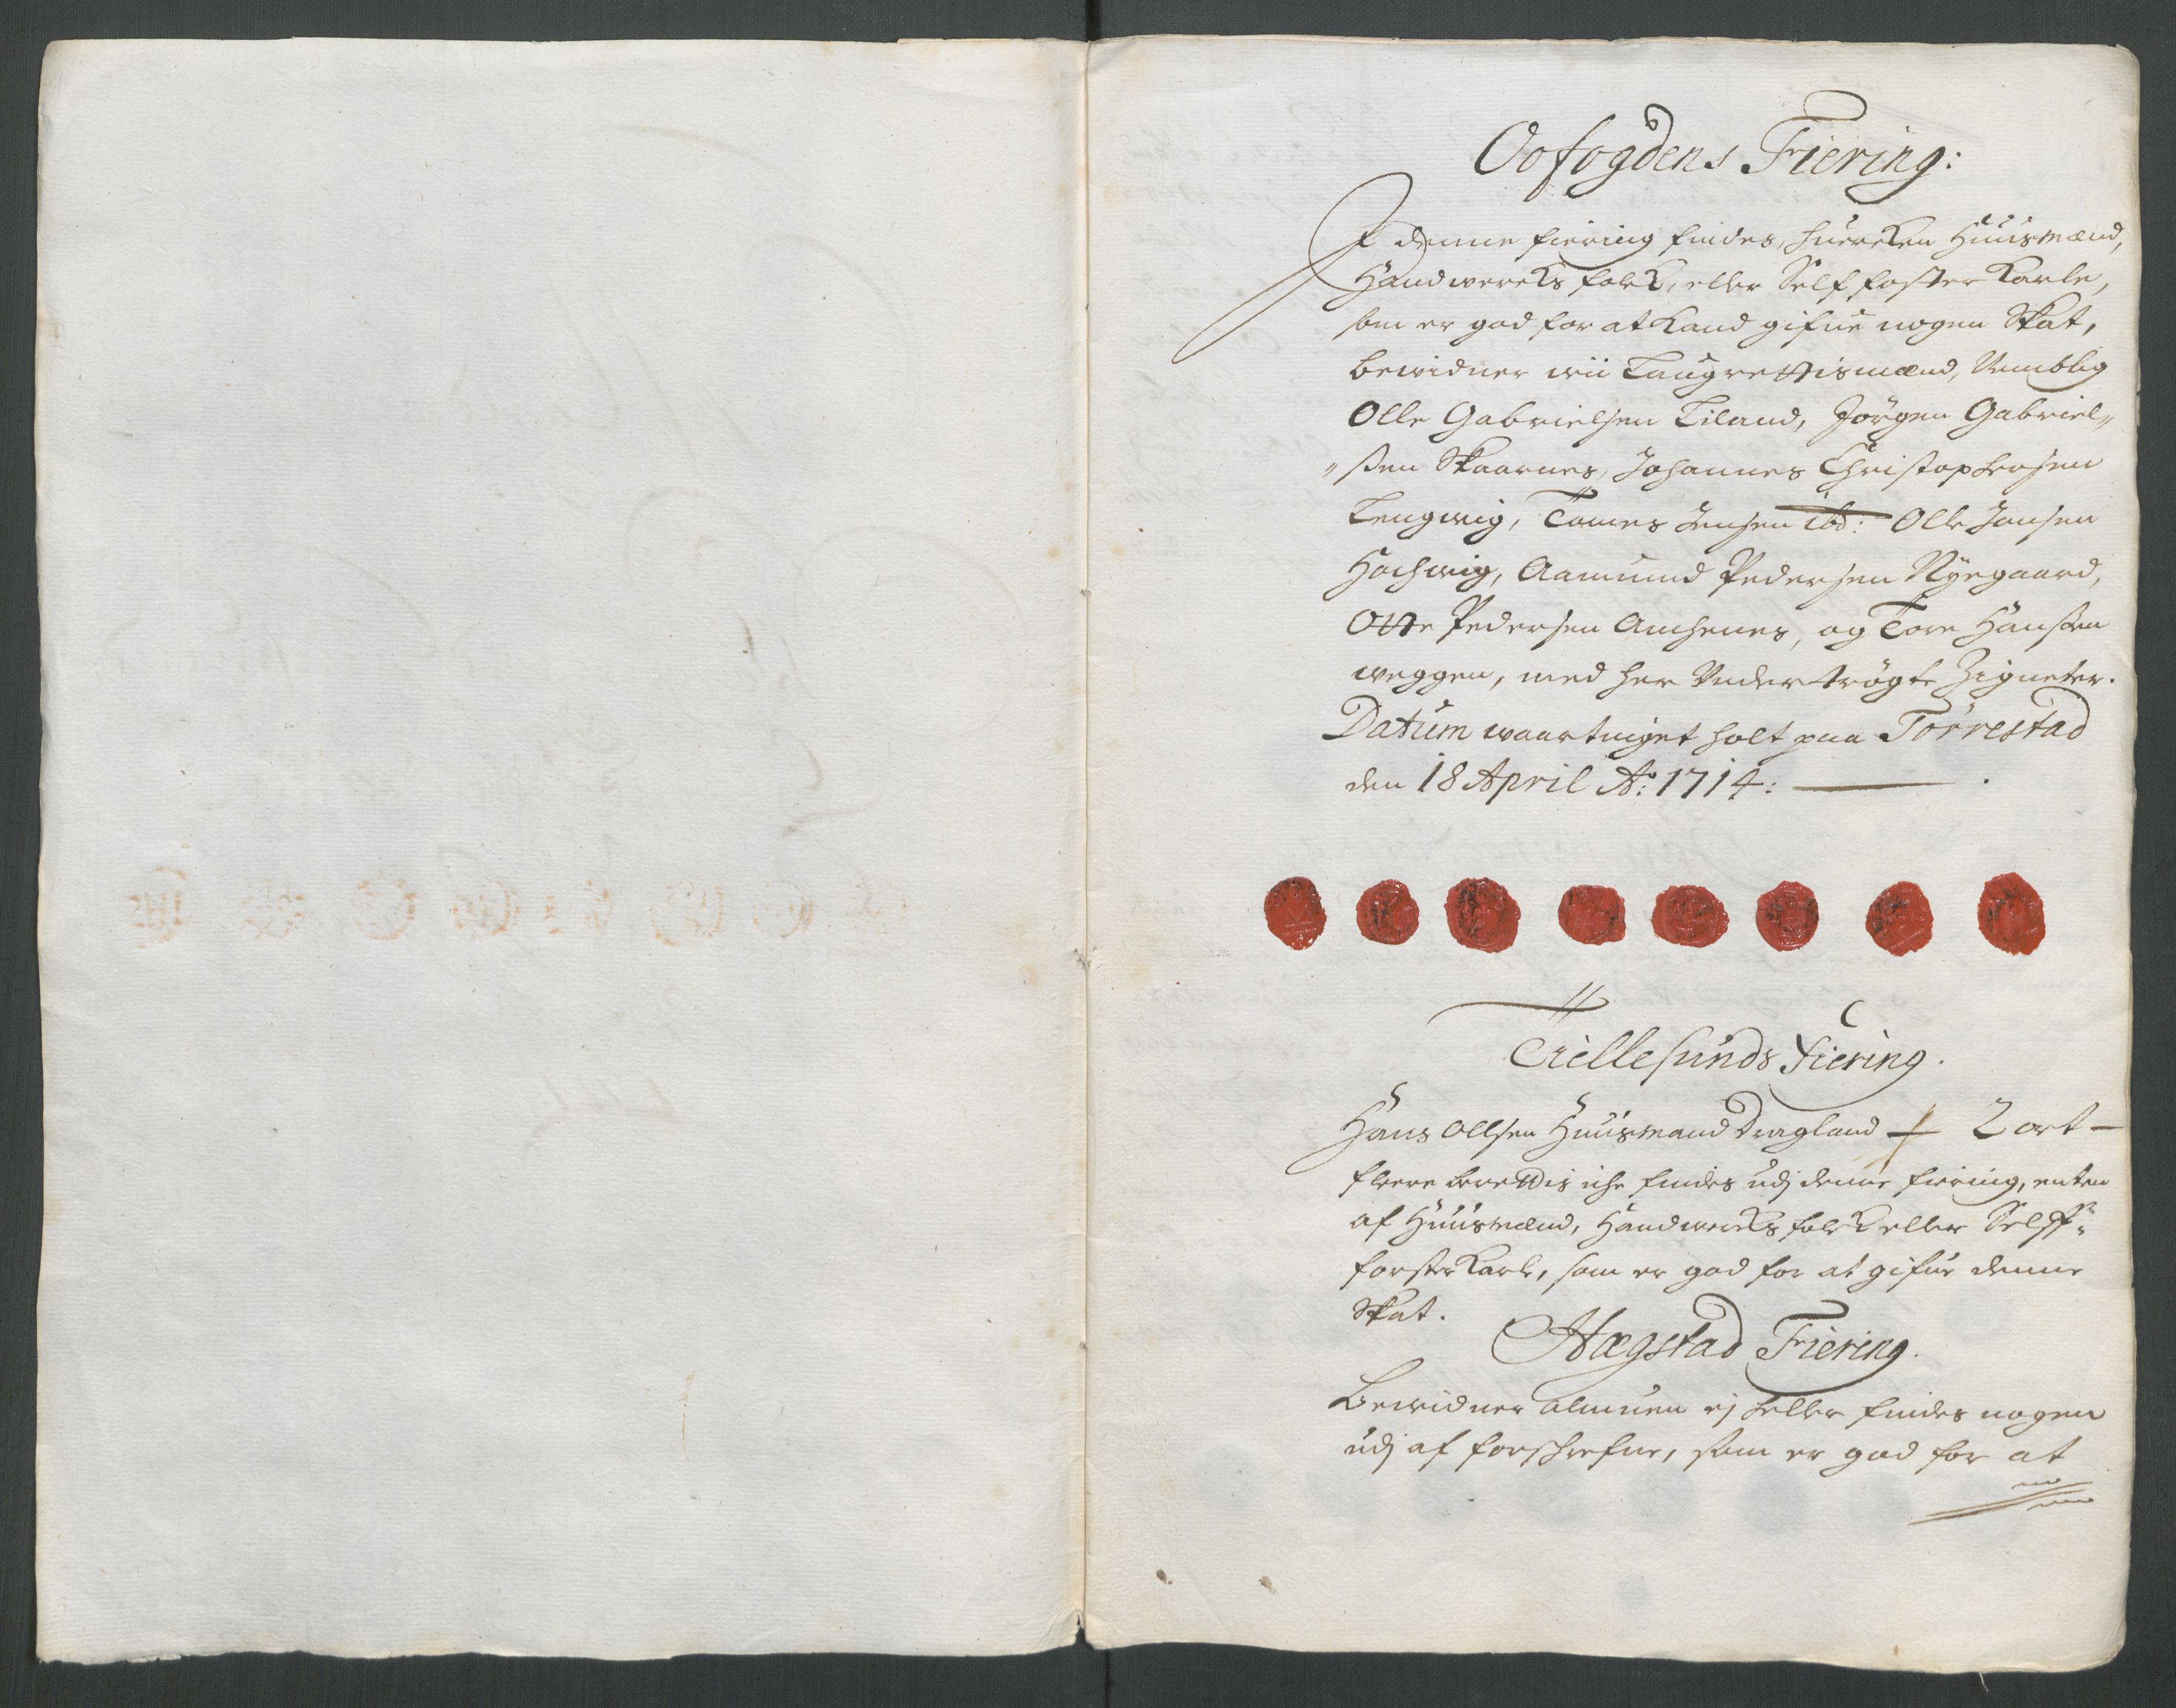 Oofogdens Fiering:
I denne fiering findes, huercken Huusmænd,
Handwercks folck, eller Self foster Karle,
som er god for at kand gifue nogen Skat,
bewidner wii Laugrettismænd, Nemblig
Olle Gabrielsen Liland, Jørgen Gabriel„
„sen Skaarnes, Johannes Christophersen
Lengwig, Tomes Jensen ibd: Olle Jonsen
Hochwig, Aamund Pedersen Nyegaard,
Otte Pedersen Amsenes, og Tore Hanssen
weggen, med her Undertrøgte Zigneter.
Datum waartinget holt paa Torrestad
den 18 April Ao: 1714:
Tiellesunds Fiering.
Hans Ollsen Huusmand Dragland — 2 ort —
fleere berettis iche findes udj denne fiering, enten
af Huusmænd, Handwercks folck eller Selff„
foster Karle, som er god for at gifue denne
Skat.
Hægstad Fiering.
Bewidner almuen ej heller findes nogen
udj af forschrefne, som er god for at